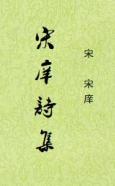 宋庠詩集
宋 宋庠